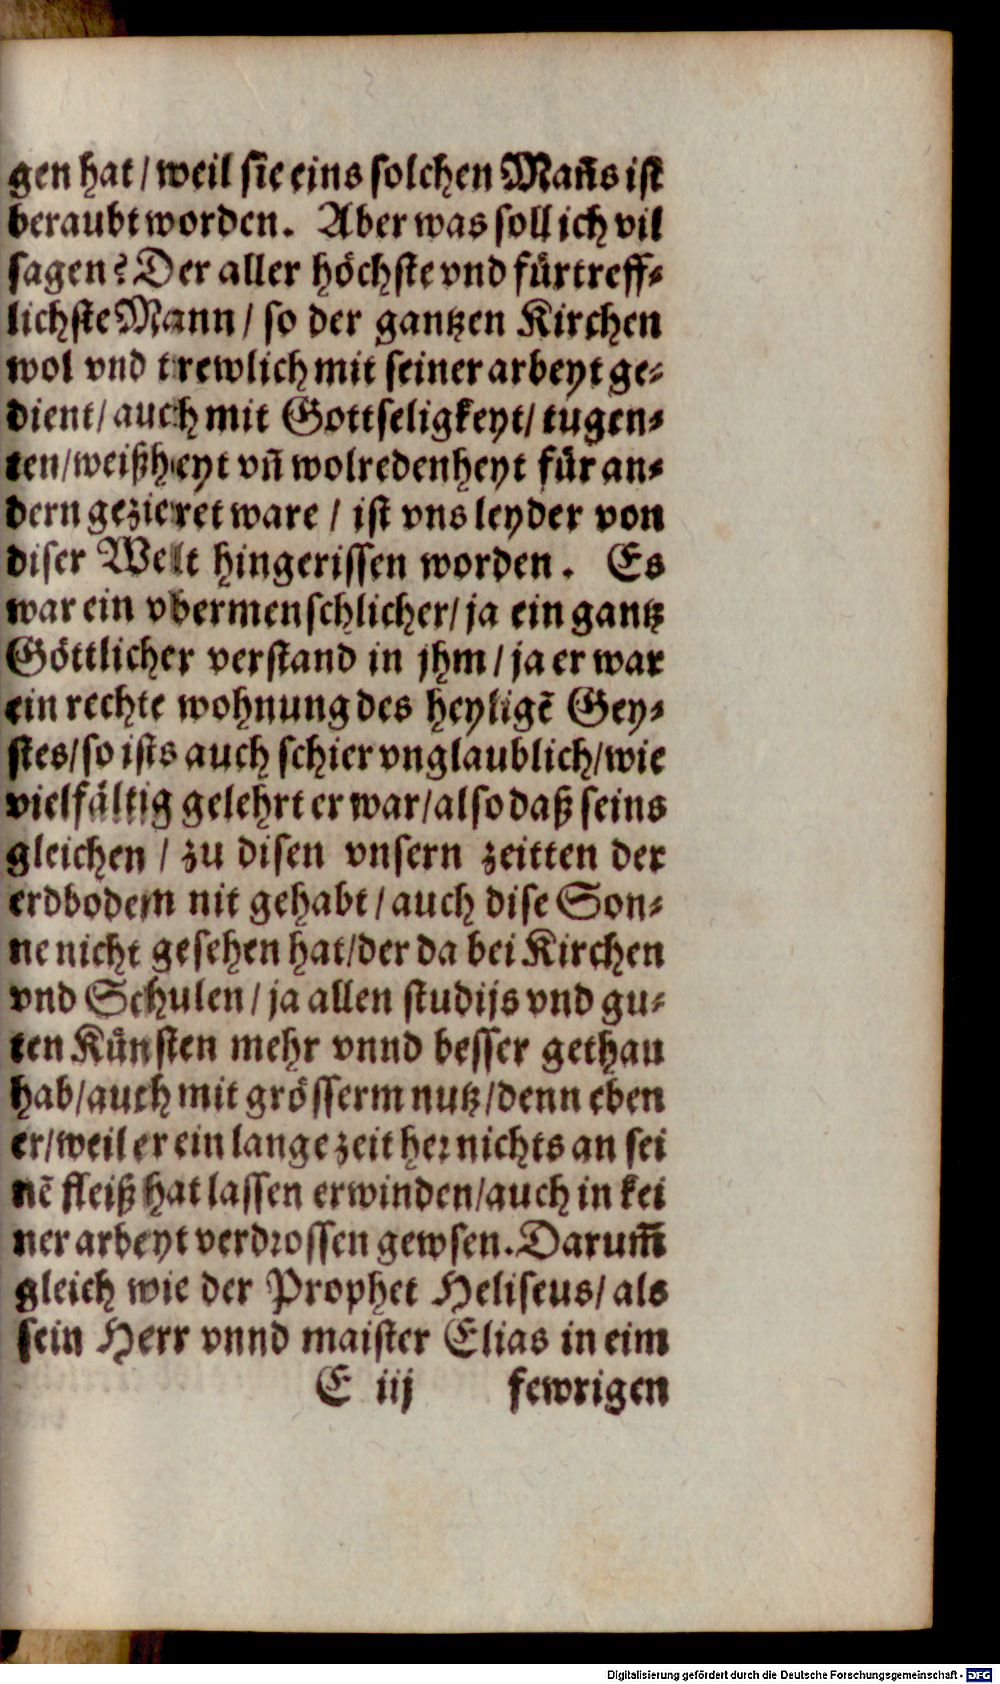 gen hat / weil sie eins solchen Mañs ist
beraubt worden. Aber was soll ich vil
sagen? Der aller höchste vnd fürtreff-
lichste Mann / so der gantzen Kirchen
wol vnd trewlich mit seiner arbeyt ge-
dient / auch mit Gottseligkeyt / tugen-
ten / weißheyt vñ wolredenheyt für an-
dern gezieret ware / ist vns leyder von
diser Welt hingerissen worden. Es
war ein vbermenschlicher / ja ein gantz
Göttlicher verstand in jhm / ja er war
ein rechte wohnung des heyligẽ Gey-
stes / so ists auch schier vnglaublich / wie
vielfältig gelehrt er war / also daß seins
gleichen / zu disen vnsern zeitten der
erdbodem nit gehabt / auch dise Son-
ne nicht gesehen hat / der da bei Kirchen
vnd Schulen / ja allen studijs vnd gu-
ten Künsten mehr vnnd besser gethan
hab / auch mit grösserm nutz / denn eben
er / weil er ein lange zeit her nichts an sei
nẽ fleiß hat lassen erwinden / auch in kei
ner arbeyt verdrossen gewsen. Darum̃
gleich wie der Prophet Heliseus / als
sein Herr vnnd maister Elias in eim
E iij fewrigen
Digitalisierung gefördert durch die Deutsche Forschungsgemeinschaft - DFG